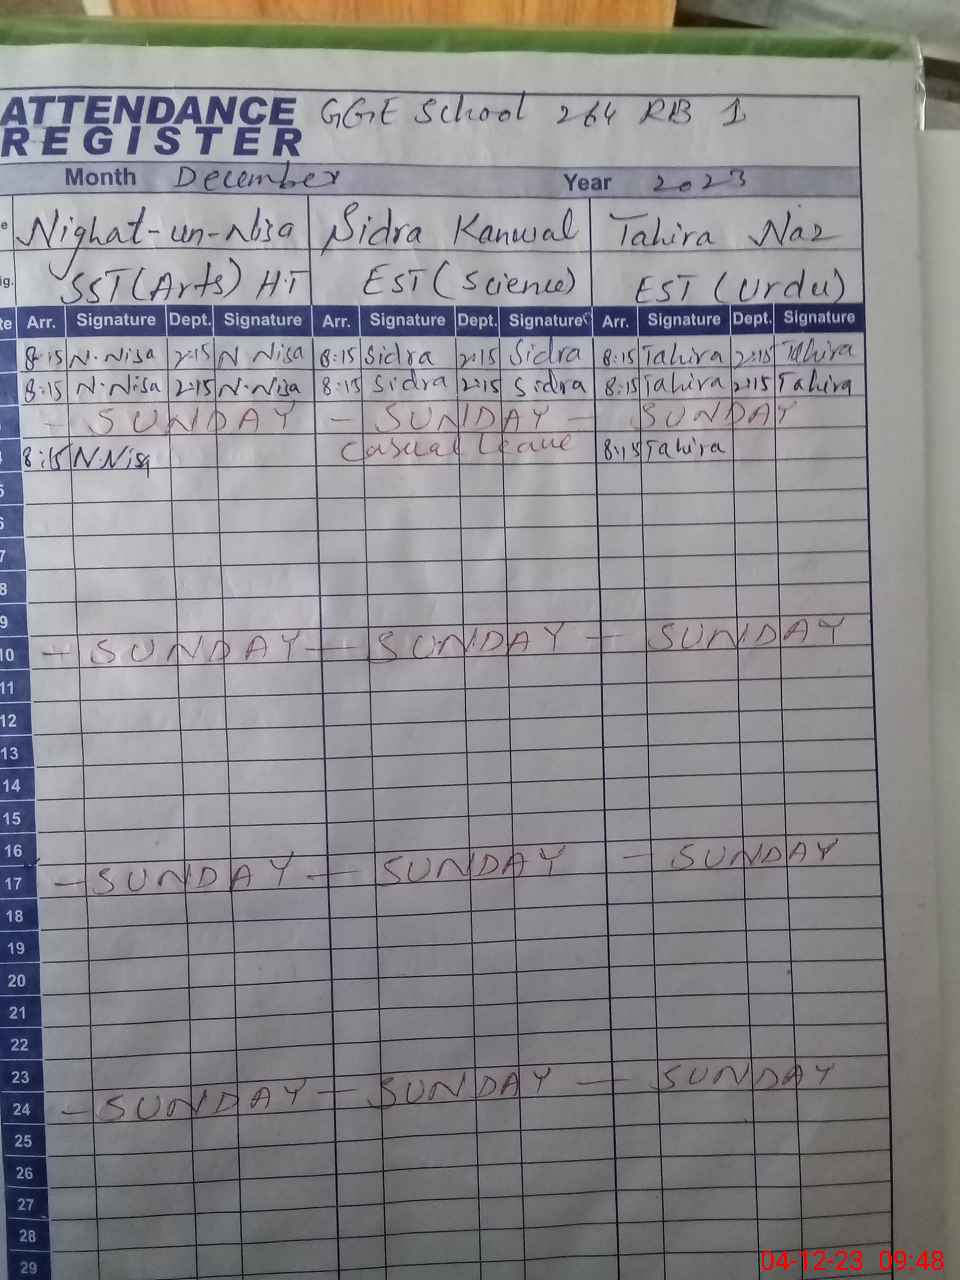 ATTENDANCE REGISTER GGE School 264 RB 1
Month December Year 2023
e Nighat-un-Nisa Sidra Kanwal Tahira Naz
ig. SST(Arts) H.T EST (Science) EST (Urdu)
te Arr. Signature Dept. Signature Arr. Signature Dept. Signature Arr. Signature Dept. Signature
8:15 N.Nisa 2:15 N Nisa 8:15 Sidra 2:15 Sidra 8:15 Tahira 2:15 Tahira
8:15 N.Nisa 2:15 N.Nisa 8:15 Sidra 2:15 Sidra 8:15 Tahira 2:15 Tahira
- SUNDAY - SUNDAY - SUNDAY
8:15 N.Nisa Casual leave 8:15 Tahira
5
6
7
8
9
10 - SUNDAY - SUNDAY - SUNDAY
11
12
13
14
15
16
17 - SUNDAY - SUNDAY - SUNDAY
18
19
20
21
22
23
24 - SUNDAY - SUNDAY - SUNDAY
25
26
27
28
29
04-12-23 09:48